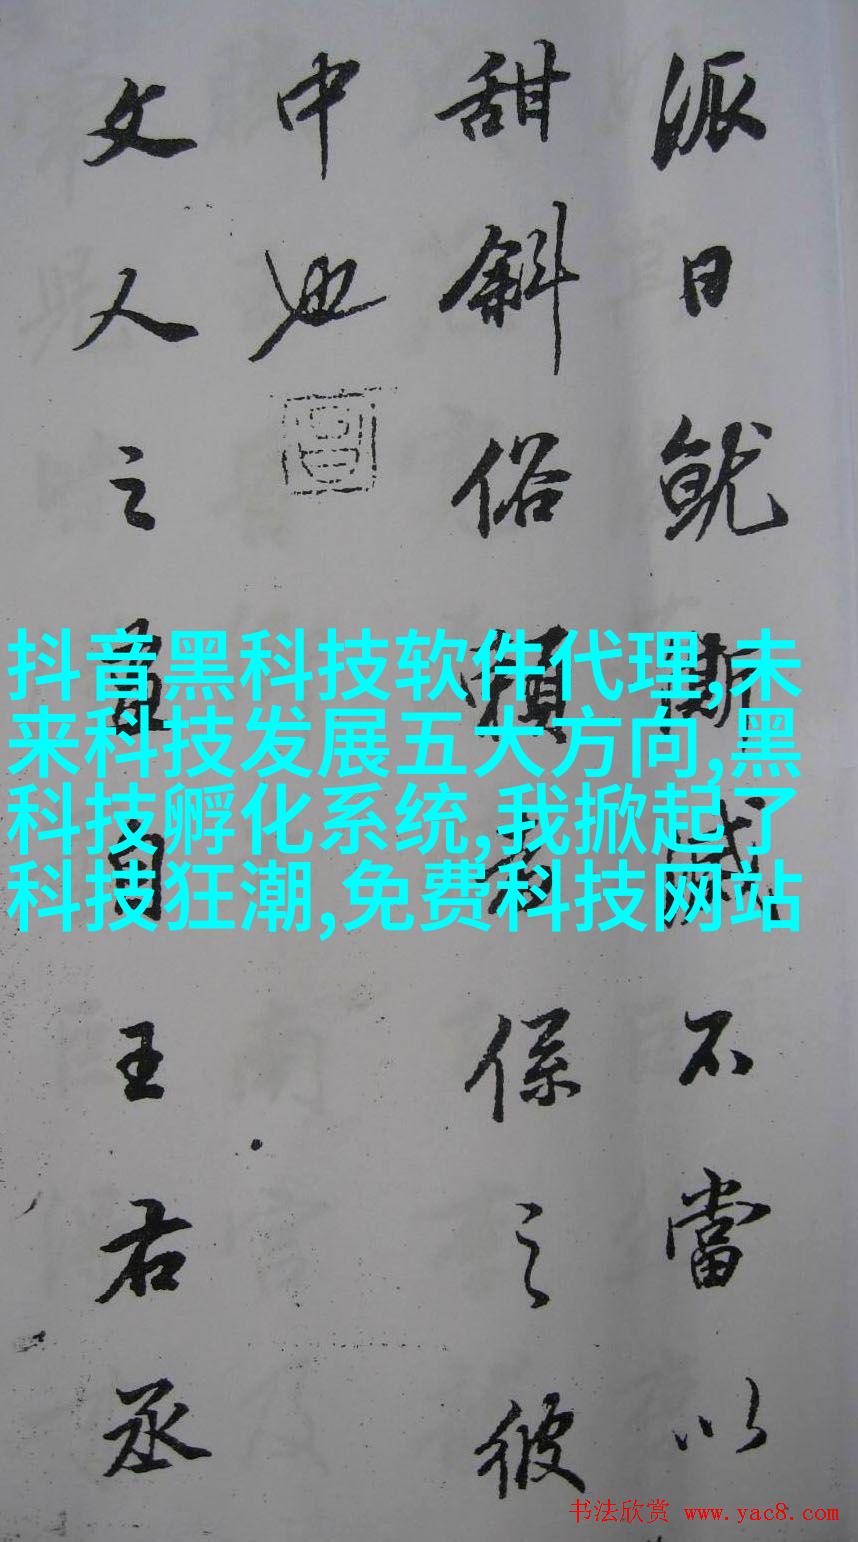 派日就澌滅不當以
甜斜俗賴者係之彼
中也
文人之畫自王右丞
抖音黑科技软件代理,未
来科技发展五大方向,黑
科技孵化系统,我掀起了
科技狂潮,免费科技网站
书法欣赏 www.yac8.com